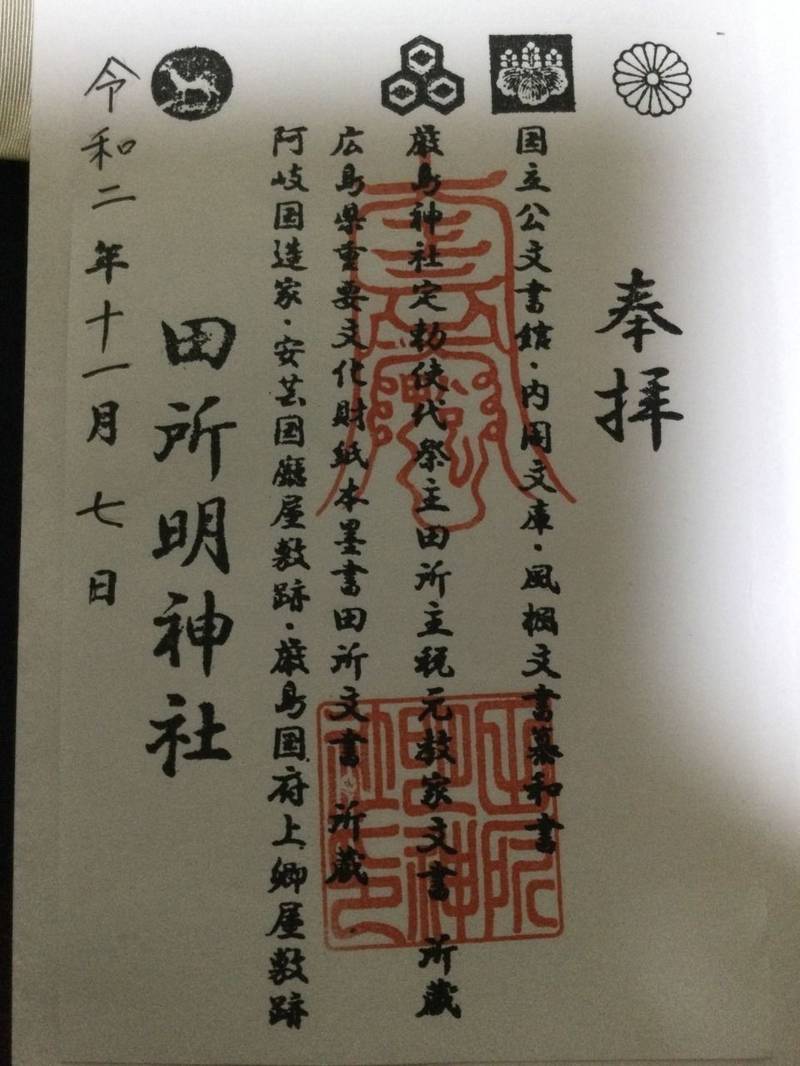 奉拝
国立公文書館・内閣文庫・文書纂和書
厳島神社定勅使代祭主田所主税元教家文書 所蔵
広島県重要文化財紙本墨書田所文書 所蔵
阿岐国造家・安芸国廳屋敷跡・厳島国府上卿屋敷跡
田所明神社
令和二年十一月七日
田所明神社印